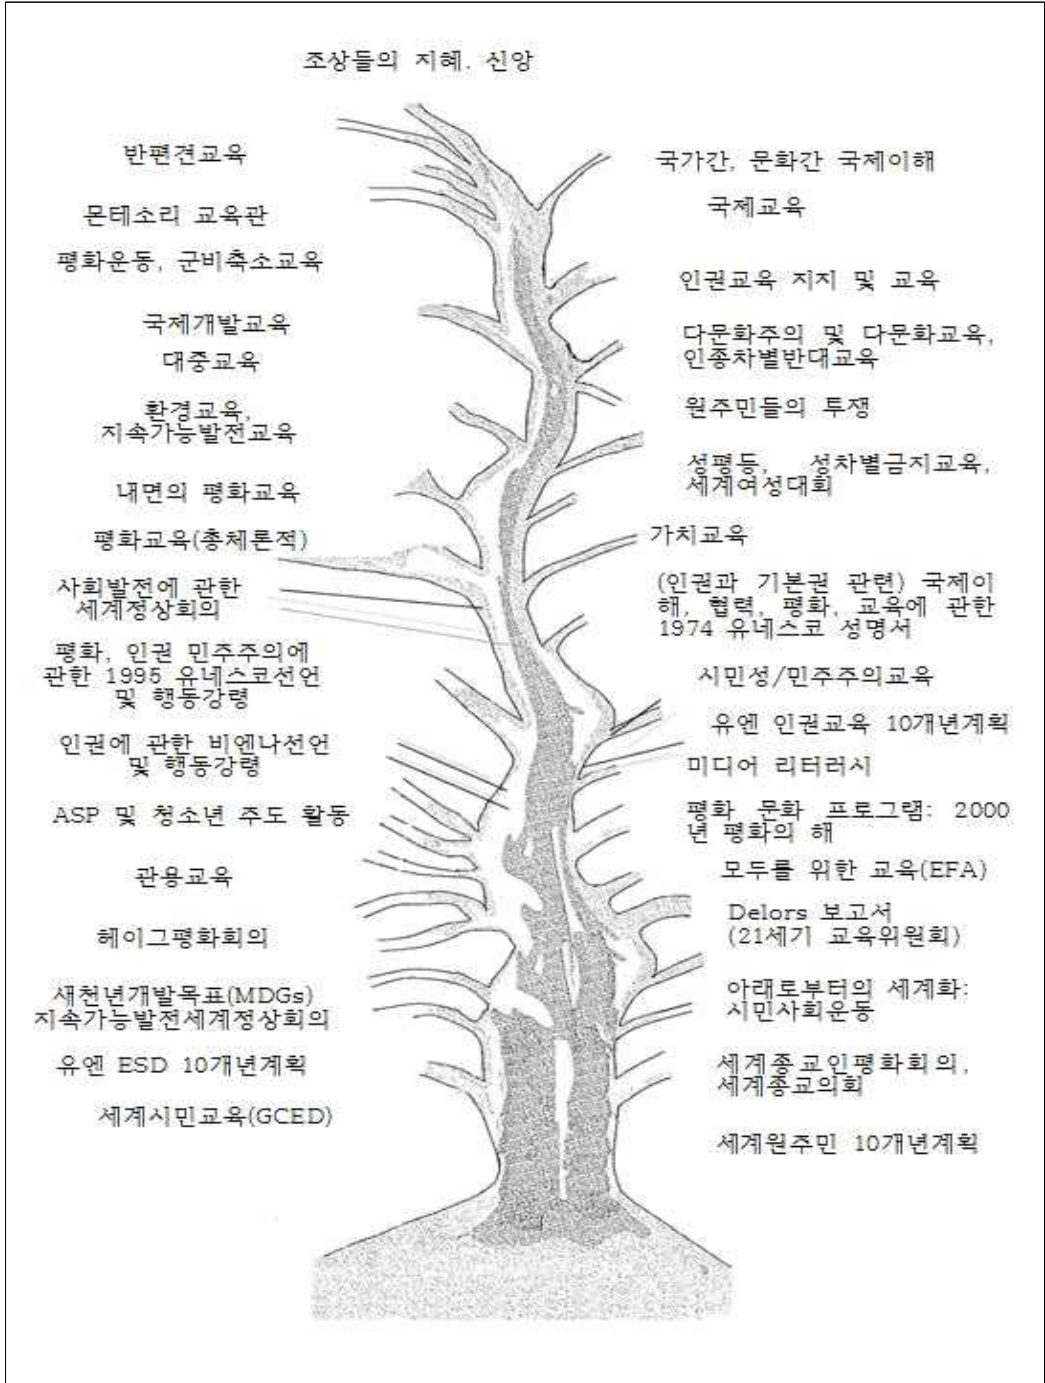 조상들의 지혜. 신앙
반편견교육
몬테소리 교육관
평화운동, 군비축소교육
국제개발교육
대중교육
환경교육,
지속가능발전교육
내면의 평화교육
평화교육(총체론적)
사회발전에 관한
세계정상회의
평화, 인권 민주주의에
관한 1995 유네스코선언
및 행동강령
인권에 관한 비엔나선언
및 행동강령
ASP 및 청소년 주도 활동
관용교육
헤이그평화회의
새천년개발목표(MDGs)
지속가능발전세계정상회의
유엔 ESD 10개년계획
세계시민교육(GCED)
국가간, 문화간 국제이해
국제교육
인권교육 지지 및 교육
다문화주의 및 다문화교육,
인종차별반대교육
원주민들의 투쟁
성평등, 성차별금지교육,
세계여성대회
가치교육
(인권과 기본권 관련) 국제이
해, 협력, 평화, 교육에 관한
1974 유네스코 성명서
시민성/민주주의교육
유엔 인권교육 10개년계획
미디어 리터러시
평화 문화 프로그램: 2000
년 평화의 해
모두를 위한 교육(EFA)
Delors 보고서
(21세기 교육위원회)
아래로부터의 세계화:
시민사회운동
세계종교인평화회의,
세계종교의회
세계원주민 10개년계획